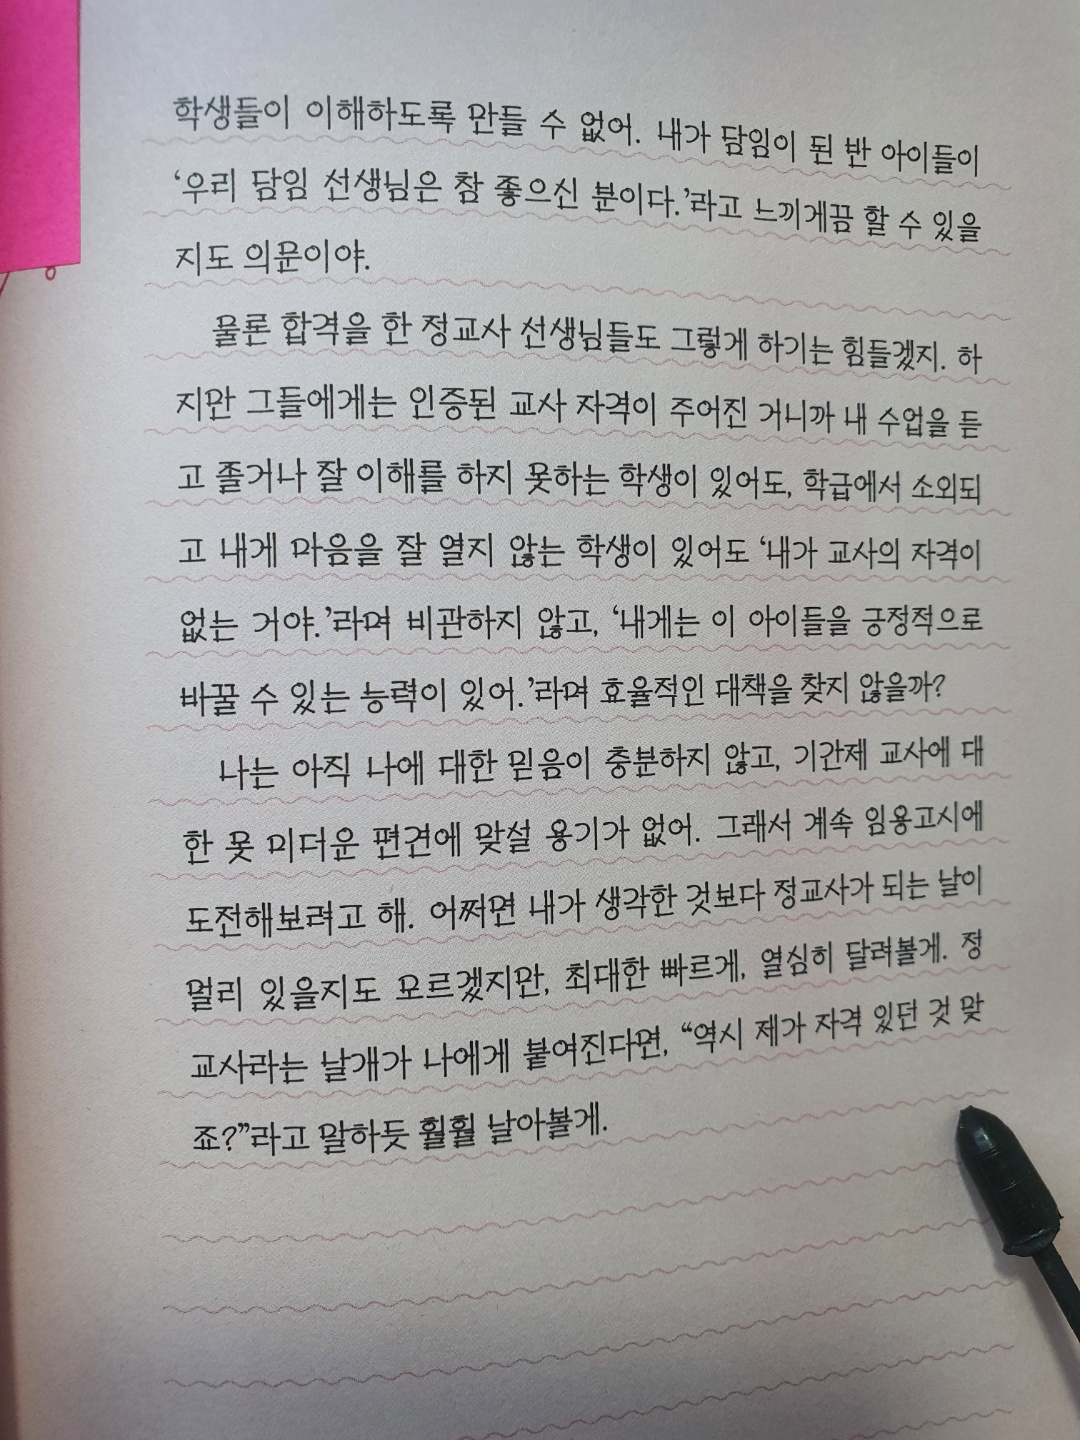 학생들이 이해하도록 만들 수 없어. 내가 담임이 된 반 아이들이
‘우리 담임 선생님은 참 좋으신 분이다.’라고 느끼게끔 할 수 있을
지도 의문이야.
물론 합격을 한 정교사 선생님들도 그렇게 하기는 힘들겠지. 하
지만 그들에게는 인증된 교사 자격이 주어진 거니까 내 수업을 듣
고 졸거나 잘 이해를 하지 못하는 학생이 있어도, 학급에서 소외되
고 내게 마음을 잘 열지 않는 학생이 있어도 ‘내가 교사의 자격이
없는 거야.’라며 비관하지 않고, ‘내게는 이 아이들을 긍정적으로
바꿀 수 있는 능력이 있어.’라며 효율적인 대책을 찾지 않을까?
나는 아직 나에 대한 믿음이 충분하지 않고, 기간제 교사에 대
한 못 미더운 편견에 맞설 용기가 없어. 그래서 계속 임용고시에
도전해보려고 해. 어쩌면 내가 생각한 것보다 정교사가 되는 날이
멀리 있을지도 모르겠지만, 최대한 빠르게, 열심히 달려볼게. 정
교사라는 날개가 나에게 붙여진다면, “역시 제가 자격 있던 것 맞
죠?”라고 말하듯 훨훨 날아볼게.